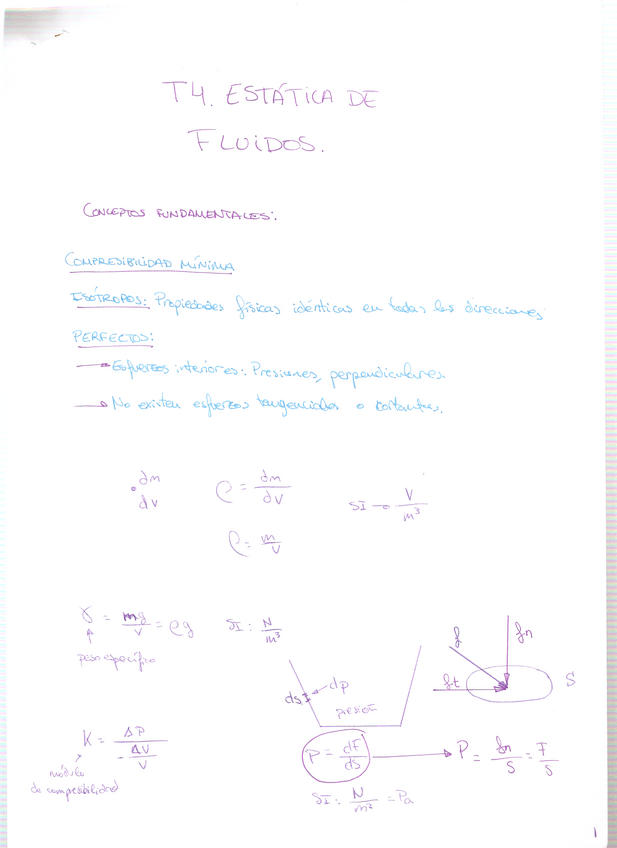 T4. ESTÁTICA DE
FLUIDOS.
CONCEPTOS FUNDAMENTALES:
COMPRESIBILIDAD MÍNIMA
ISÓTROPOS: Propiedades físicas idénticas en todas las direcciones
PERFECTOS:
→ Esfuerzos interiores: Presiones, perpendiculares.
→ No existen esfuerzos tangenciales o cortantes.
• dm
dv
ρ = dm/dv
SI → V/m³
ρ = m/V
γ = mg/V = ρg SI: N/m³
peso específico
ds dp
presión
f fn
ft S
K = ΔP / (-ΔV/V)
módulo
de compresibilidad
P = dF/ds → P = fn/S = F/S
SI: N/m² = Pa
1